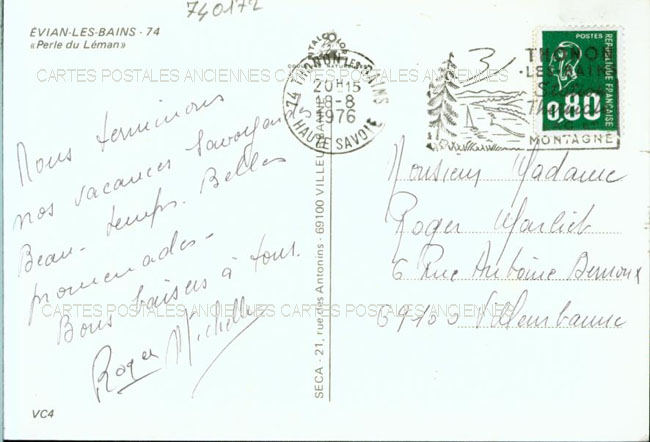 740172
ÉVIAN-LES-BAINS - 74
«Perle du Léman»
CARTES POSTALES ANCIENNES
CARTES POSTALES ANCIENNES
74 THONON-LES-BAINS
20H15
18-8
1976
HAUTE SAVOIE
THONON
-LES-BAINS
MONTAGNE
POSTES
REPUBLIQUE FRANÇAISE
0,80
Nous terminons
nos vacances Savoyardes
Beau-temps. Belles
promenades-
Bons baisers à tous.
Roger Michelle
SECA - 21, rue des Antonins - 69100 VILLEURBANNE
Monsieur Madame
Roger
6 Rue Antoine
69100 Villeurbanne
CARTES POSTALES ANCIENNES
CARTES POSTALES ANCIENNES
VC4